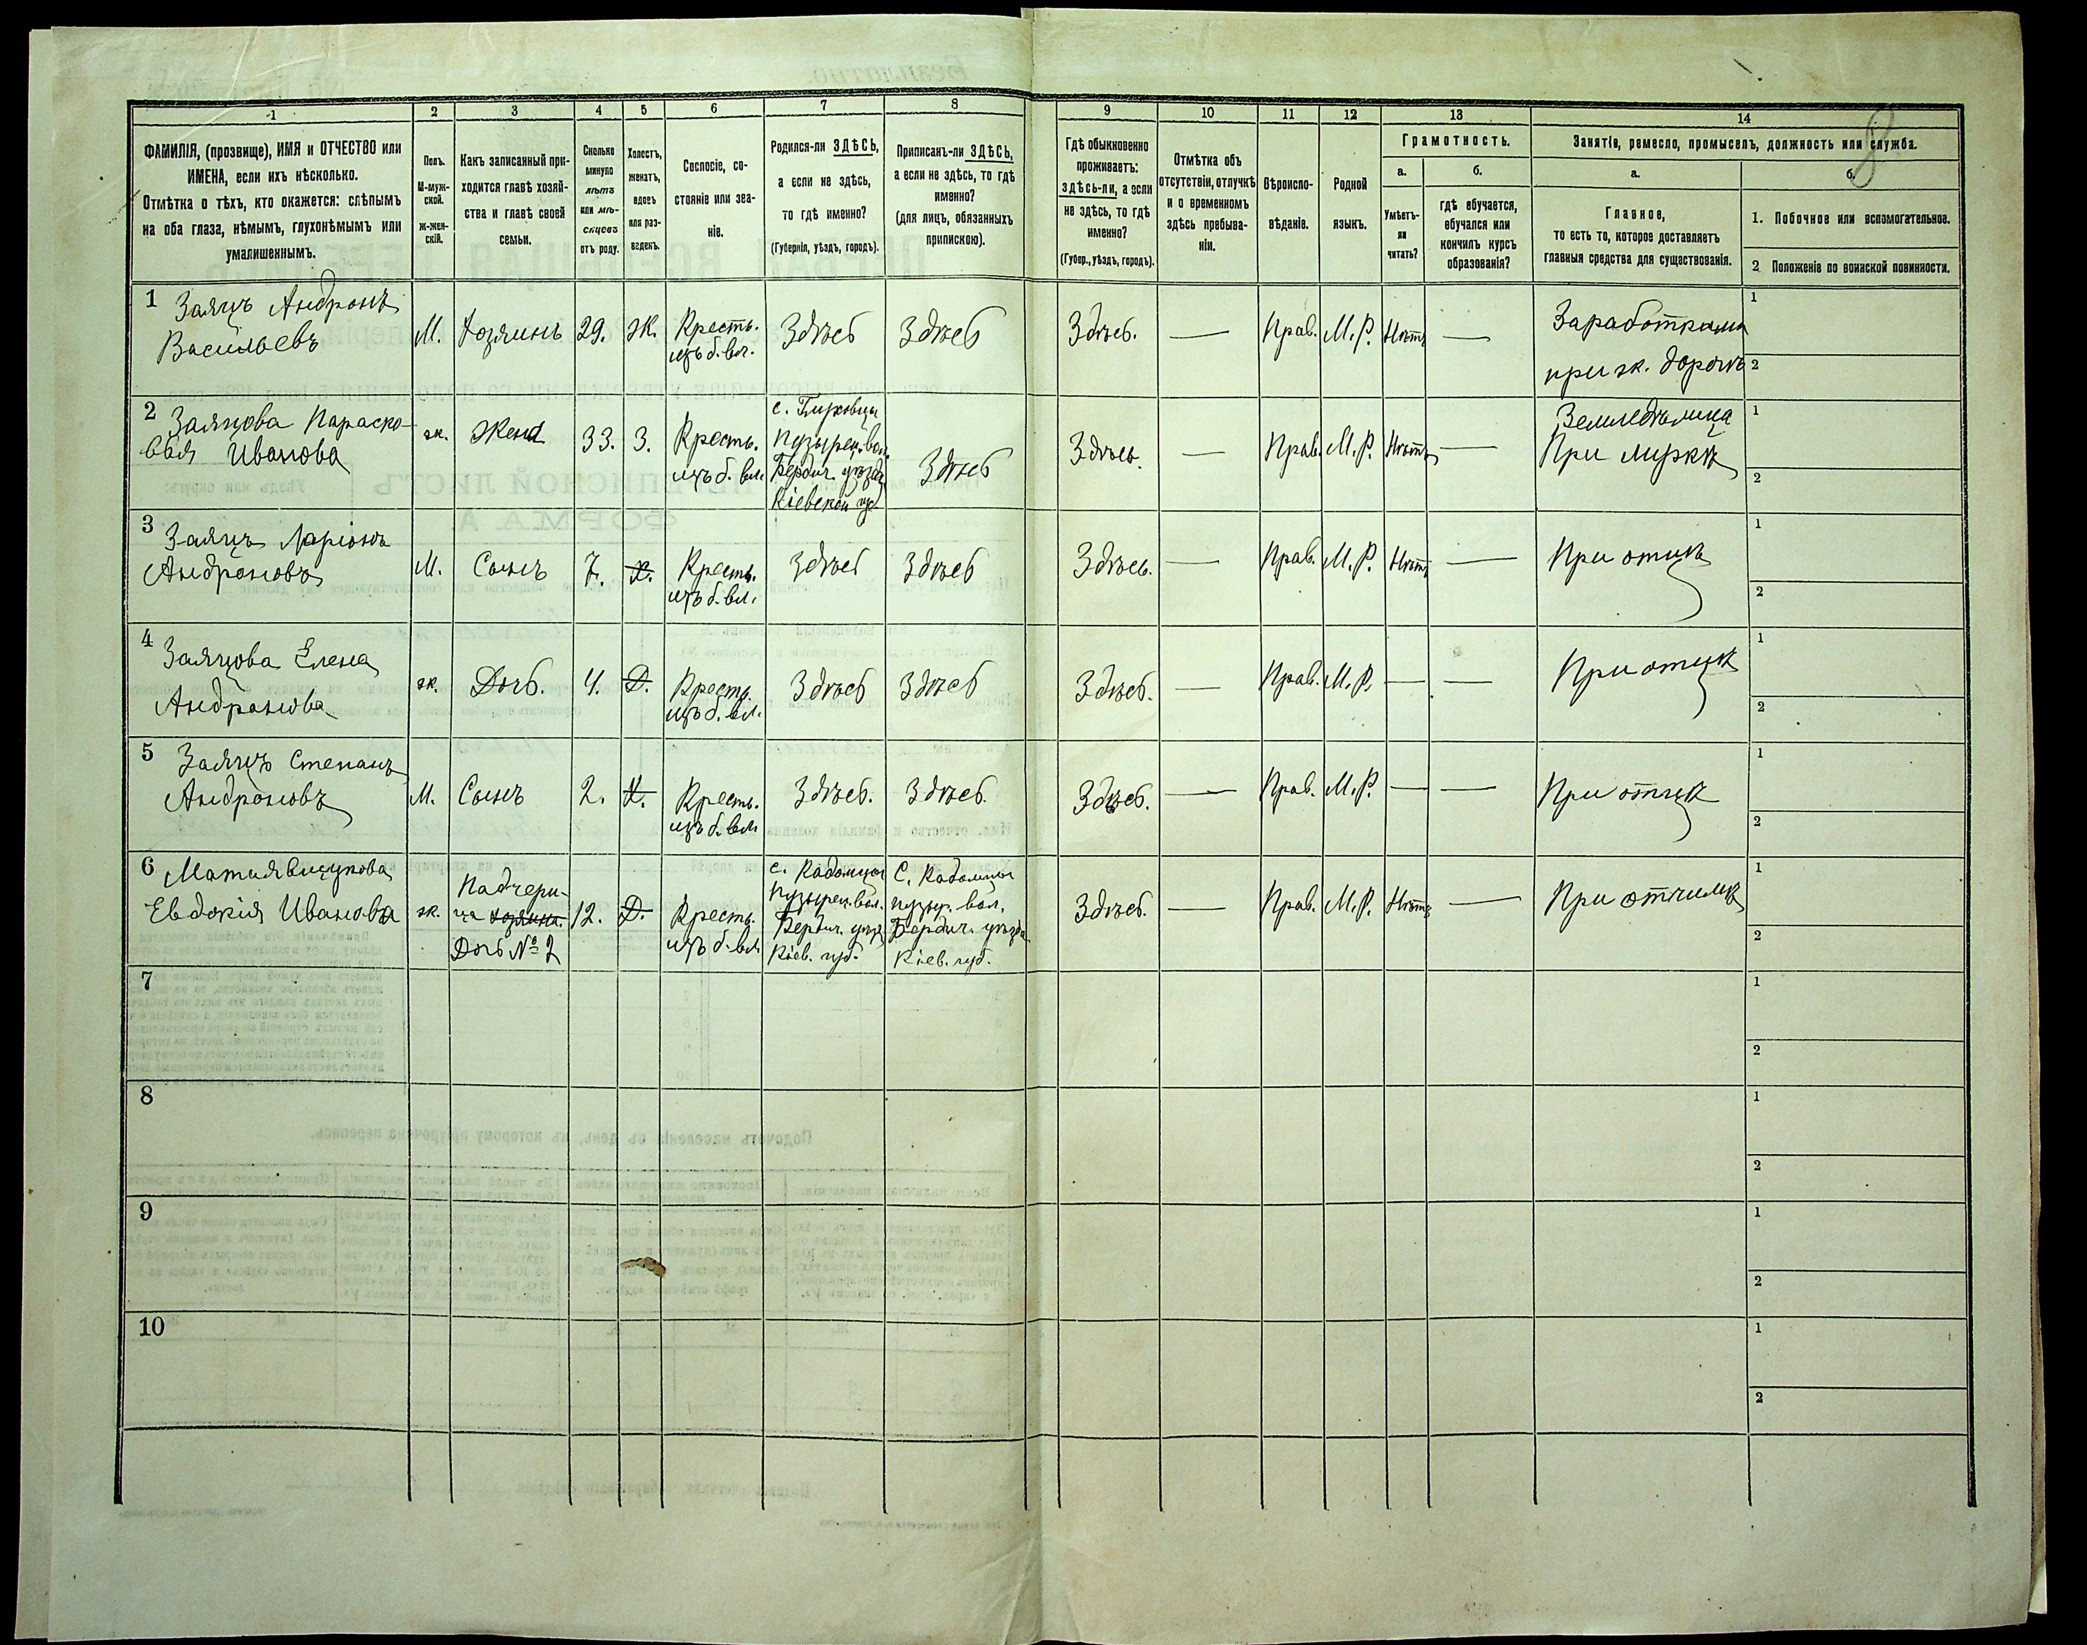 1 2 3 4 5 6 7 8 9 10 11 12 13 14
8
ФАМИЛІЯ, (прозвище), ИМЯ и ОТЧЕСТВО или
ИМЕНА, если ихъ нѣсколько.
Отмѣтка о тѣхъ, кто окажется: слѣпымъ
на оба глаза, нѣмымъ, глухонѣмымъ или
умалишеннымъ.
Полъ.
М-муж-
ской.
Ж-жен-
скій.
Какъ записанный при-
ходится главѣ хозяй-
ства и главѣ своей
семьи.
Сколько
минуло
лѣтъ
или мѣ-
сяцевъ
отъ роду.
Холостъ,
женатъ,
вдовъ
или раз-
веденъ.
Сословіе, со-
стояніе или зва-
ніе.
Родился-ли ЗДѢСЬ,
а если не здѣсь,
то гдѣ именно?
(Губернія, уѣздъ, городъ).
Приписанъ-ли ЗДѢСЬ,
а если не здѣсь, то гдѣ
именно?
(для лицъ, обязанныхъ
припискою).
Гдѣ обыкновенно
проживаетъ:
здѣсь-ли, а если
не здѣсь, то гдѣ
именно?
(Губер., уѣздъ, городъ).
Отмѣтка объ
отсутствіи, отлучкѣ
и о временномъ
здѣсь пребыва-
ніи.
Вѣроиспо-
вѣданіе.
Родной
языкъ.
Грамотность.
а.
Умѣетъ-
ли
читать?
б.
гдѣ обучается,
обучался или
кончилъ курсъ
образованія?
Занятіе, ремесло, промыселъ, должность или служба.
а.
Главное,
то есть то, которое доставляетъ
главныя средства для существованія.
б.
1. Побочное или вспомогательное.
2 Положеніе по воинской повинности.
1 Заяцъ Андронъ
Васильевъ
М. Хозяинъ 29. Ж. Кресть.
изъ б. вл.
Здѣсь Здѣсь Здѣсь. — Прав. М. Р. Нѣтъ —
Заработками
при ж. дорогѣ
1
2
2 Заяцова Параско-
вія Иванова
ж. Жена 33. З. Кресть.
изъ б. вл.
Пузырец. вол.
Бердич. уѣзда
Кіевской гу.
Здѣсь Здѣсь. — Прав. М. Р. Нѣтъ —
При мужѣ
1
2
3 Заяцъ Ларіонъ
Андроновъ
М. Сынъ 7. Х. Кресть.
изъ б. вл.
Здѣсь Здѣсь Здѣсь. — Прав. М. Р. Нѣтъ — При отцѣ
1
2
4 Заяцова Елена
Андронова
ж. Дочь. 4. Д. Кресть.
изъ б. вл.
Здѣсь Здѣсь Здѣсь. — Прав. М. Р. — — При отцѣ
1
2
5 Заяцъ Степанъ
Андроновъ
М. Сынъ 2. Х. Кресть.
изъ б. вл.
Здѣсь. Здѣсь. Здѣсь. — Прав. М. Р. — — При отцѣ
1
2
6
Евдокія Иванова
ж. Падчери-
ца хозяина.
Дочь № 2
12. Д. Кресть.
изъ б. вл.
Пузырец. вол.
Бердич. уѣзд
Кіев. губ.
Пузыр. вол.
Бердич. уѣзда
Кіев. губ.
Здѣсь. — Прав. М. Р. Нѣтъ — При отчимѣ
1
2
7
1
2
8
1
2
9
1
2
10
1
2